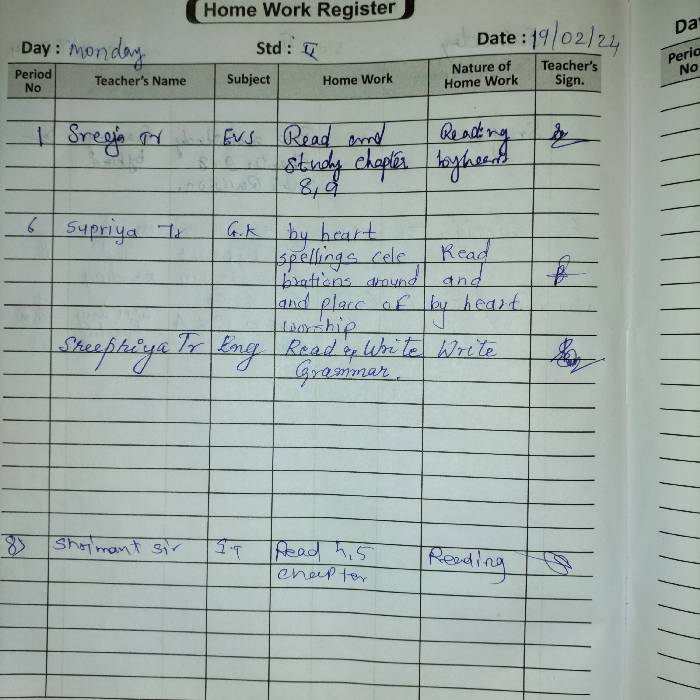 Home Work Register
Day : Monday Std : II Date : 19/02/24
Period No Teacher's Name Subject Home Work Nature of Home Work Teacher's Sign.
1 Sreeja Tr EVS Read and Reading
study chapter byheart
8,9
6 Supriya Tr G.K by heart
spellings cele Read
brations around and
and place of by heart
worship
Sreepriya Tr Eng Read & Write Write
Grammar.
8) Shrimant Sir IT Read 4,5 Reading
chapter
Da
Perio
No